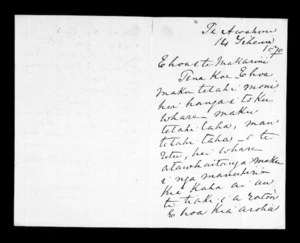 Te Awahuri
14
1870
E hoa e te Makarini
Tena koe E hoa
maku tetahi moni
hei hanga i toku
whare maku
tetahi taha, mau
tetahi taha o te
hei whare
atawhaitanga maku
i nga manuhiri
Kia kaha ai au
te tiaki i a ratou
E hoa kia aroha